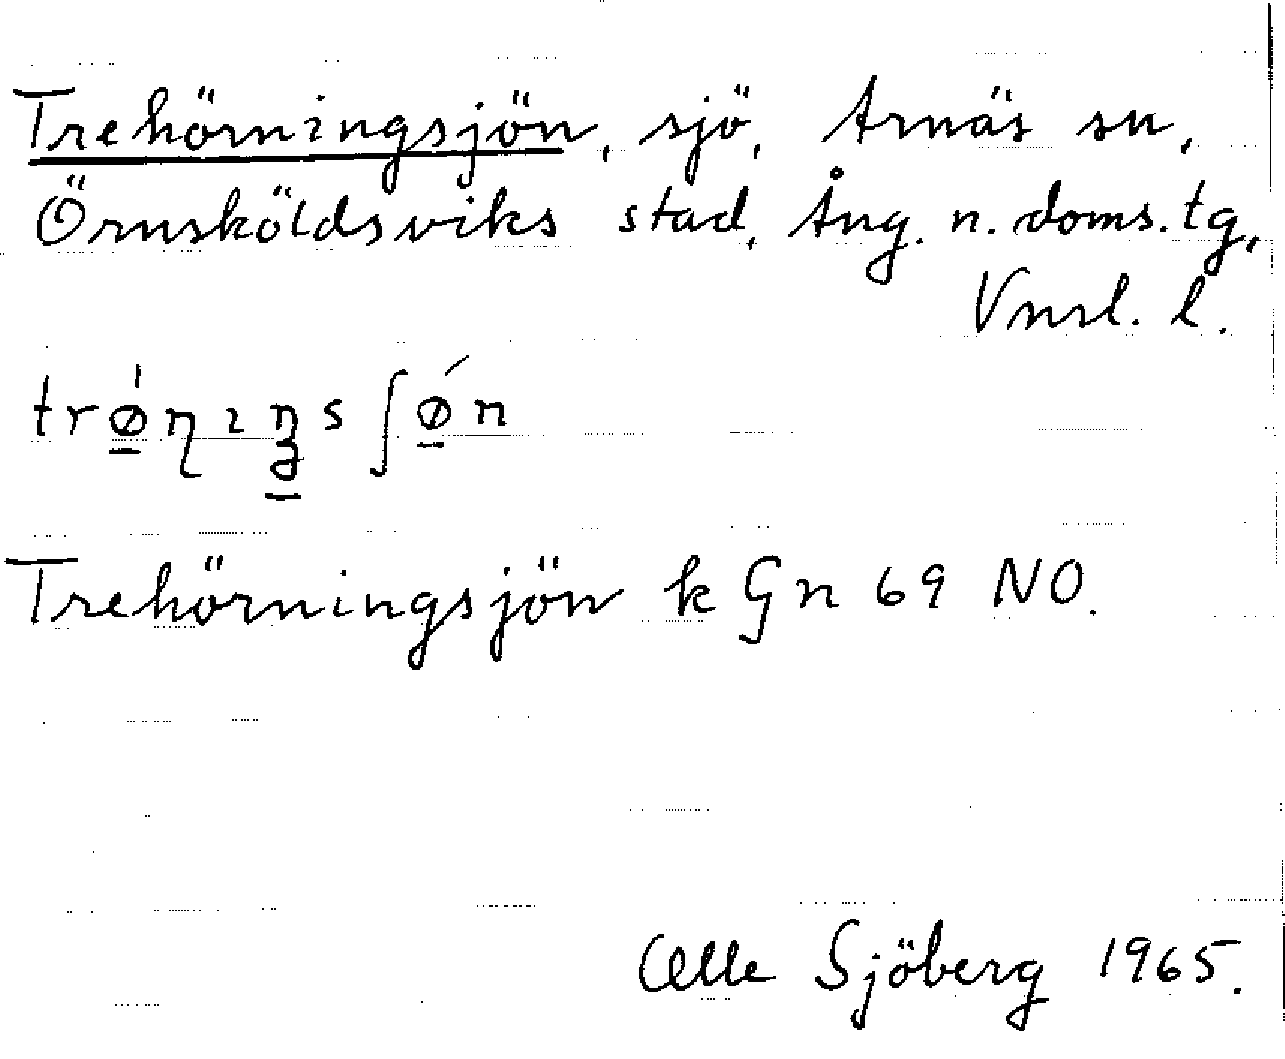 Trehörningsjön, sjö, Arnäs sn,
Örnsköldsviks stad, Ång. n. doms. tg,
Vnrl. l.
Trehörningsjön k Gn 69 NO.
Olle Sjöberg 1965.